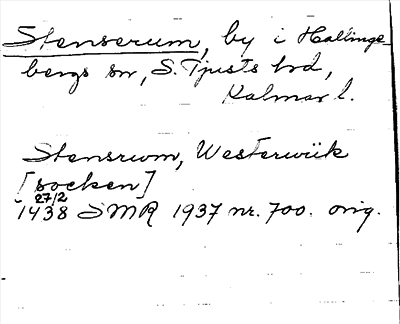 Stenserum, by i Hallinge-
bergs sn, S. Tjusts hrd,
Kalmar l.
Stensrwm, Westerwiik
[socken]
27/2
1438 SMR 1937 nr. 700. orig.